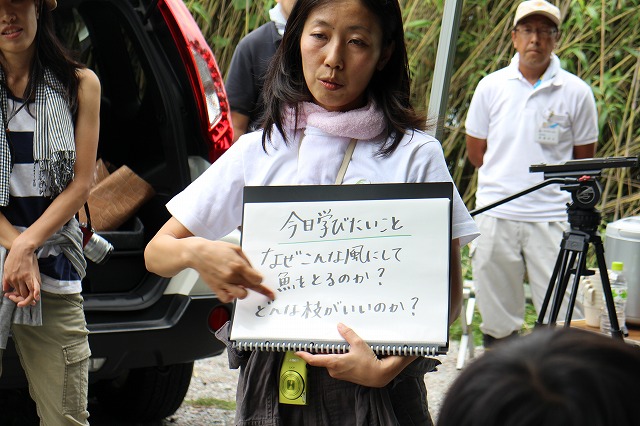 今日学びたいこと
なぜこんな風にして
魚をとるのか?
どんな枝がいいのか?